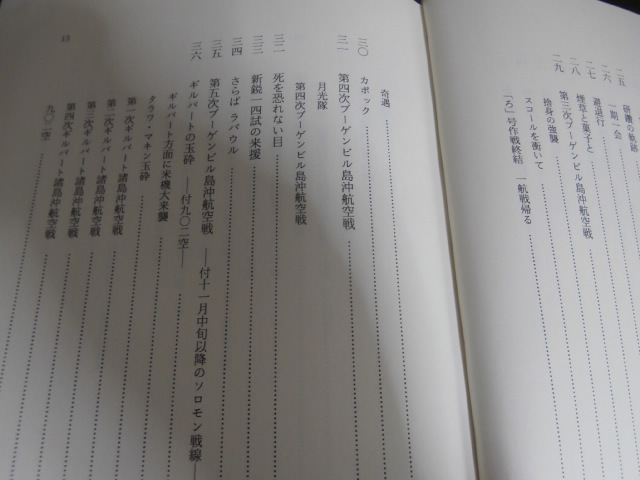 二五 研鑽の軌跡
二六 一期一会
二七 避退行
二八 煙草と菓子と
二九 第三次ブーゲンビル島沖航空戦
捨身の強襲
スコールを衝いて
「ろ」号作戦終結 一航戦帰る
奇遇
三〇 カポック
三一 第四次ブーゲンビル島沖航空戦
月光隊
第四次ブーゲンビル島沖航空戦
三二 死を恐れない目
三三 新鋭一四試の来援
三四 さらば ラバウル
三五 第五次ブーゲンビル島沖航空戦 ――付十一月中旬以降のソロモン戦線―
三六 ギルバートの玉砕 ――付九〇二空――
ギルバート方面に米機大来襲
タラワ、マキン玉砕
第一次ギルバート諸島沖航空戦
第二次ギルバート諸島沖航空戦
第三次ギルバート諸島沖航空戦
第四次ギルバート諸島沖航空戦
九〇二空
13